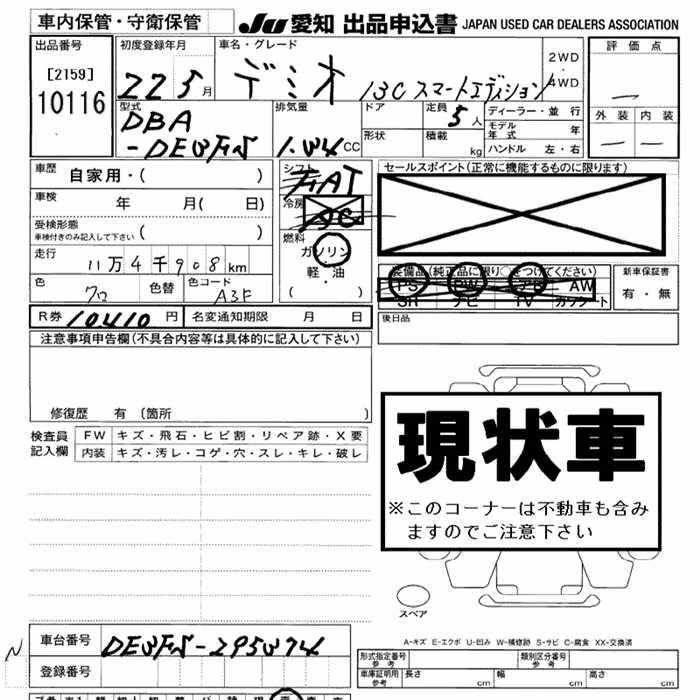 車内保管・守衛保管
JU 愛知 出品申込書 JAPAN USED CAR DEALERS ASSOCIATION
出品番号 初度登録年月 車名・グレード 2WD ・ 4WD 評価点
[2159]
10116
22 5月 デミオ 13C スマートエディション
型式 排気量 ドア 定員 5人 ディーラー・並行 外装 内装
DBA
-DE3FS 1.34CC
形状 積載 kg モデル年式 年
ハンドル 左・右
車歴 自家用・( )
シフト FAT
セールスポイント(正常に機能するものに限ります)
車検 年 月( 日)
冷房 AC
受検形態
車検付きのみ記入して下さい ( )
燃料 ガソリン
軽・油
( )
走行 11万4千908km
色 クロ 色替 色コード A3F
装備品(純正品に限り○をつけてください)
PS PW AB AW
SR ナビ TV カセット
新車保証書
有・無
R券 10410円 名変通知期限 月 日
後日品
注意事項申告欄(不具合内容等は具体的に記入して下さい)
修復歴 有 (箇所 )
検査員記入欄
FW キズ・飛石・ヒビ割・リペア跡・X要
内装 キズ・汚レ・コゲ・穴・スレ・キレ・破レ
現状車
※このコーナーは不動車も含み
ますのでご注意下さい
スペア
A-キズ E-エクボ U-凹み W-補修跡 S-サビ C-腐食 XX-交換済
N 車台番号 DE3FS-295374
登録番号
形式指定番号 参考 類別区分番号 参考
車庫証明用 参考 長さ cm 幅 cm 高さ cm